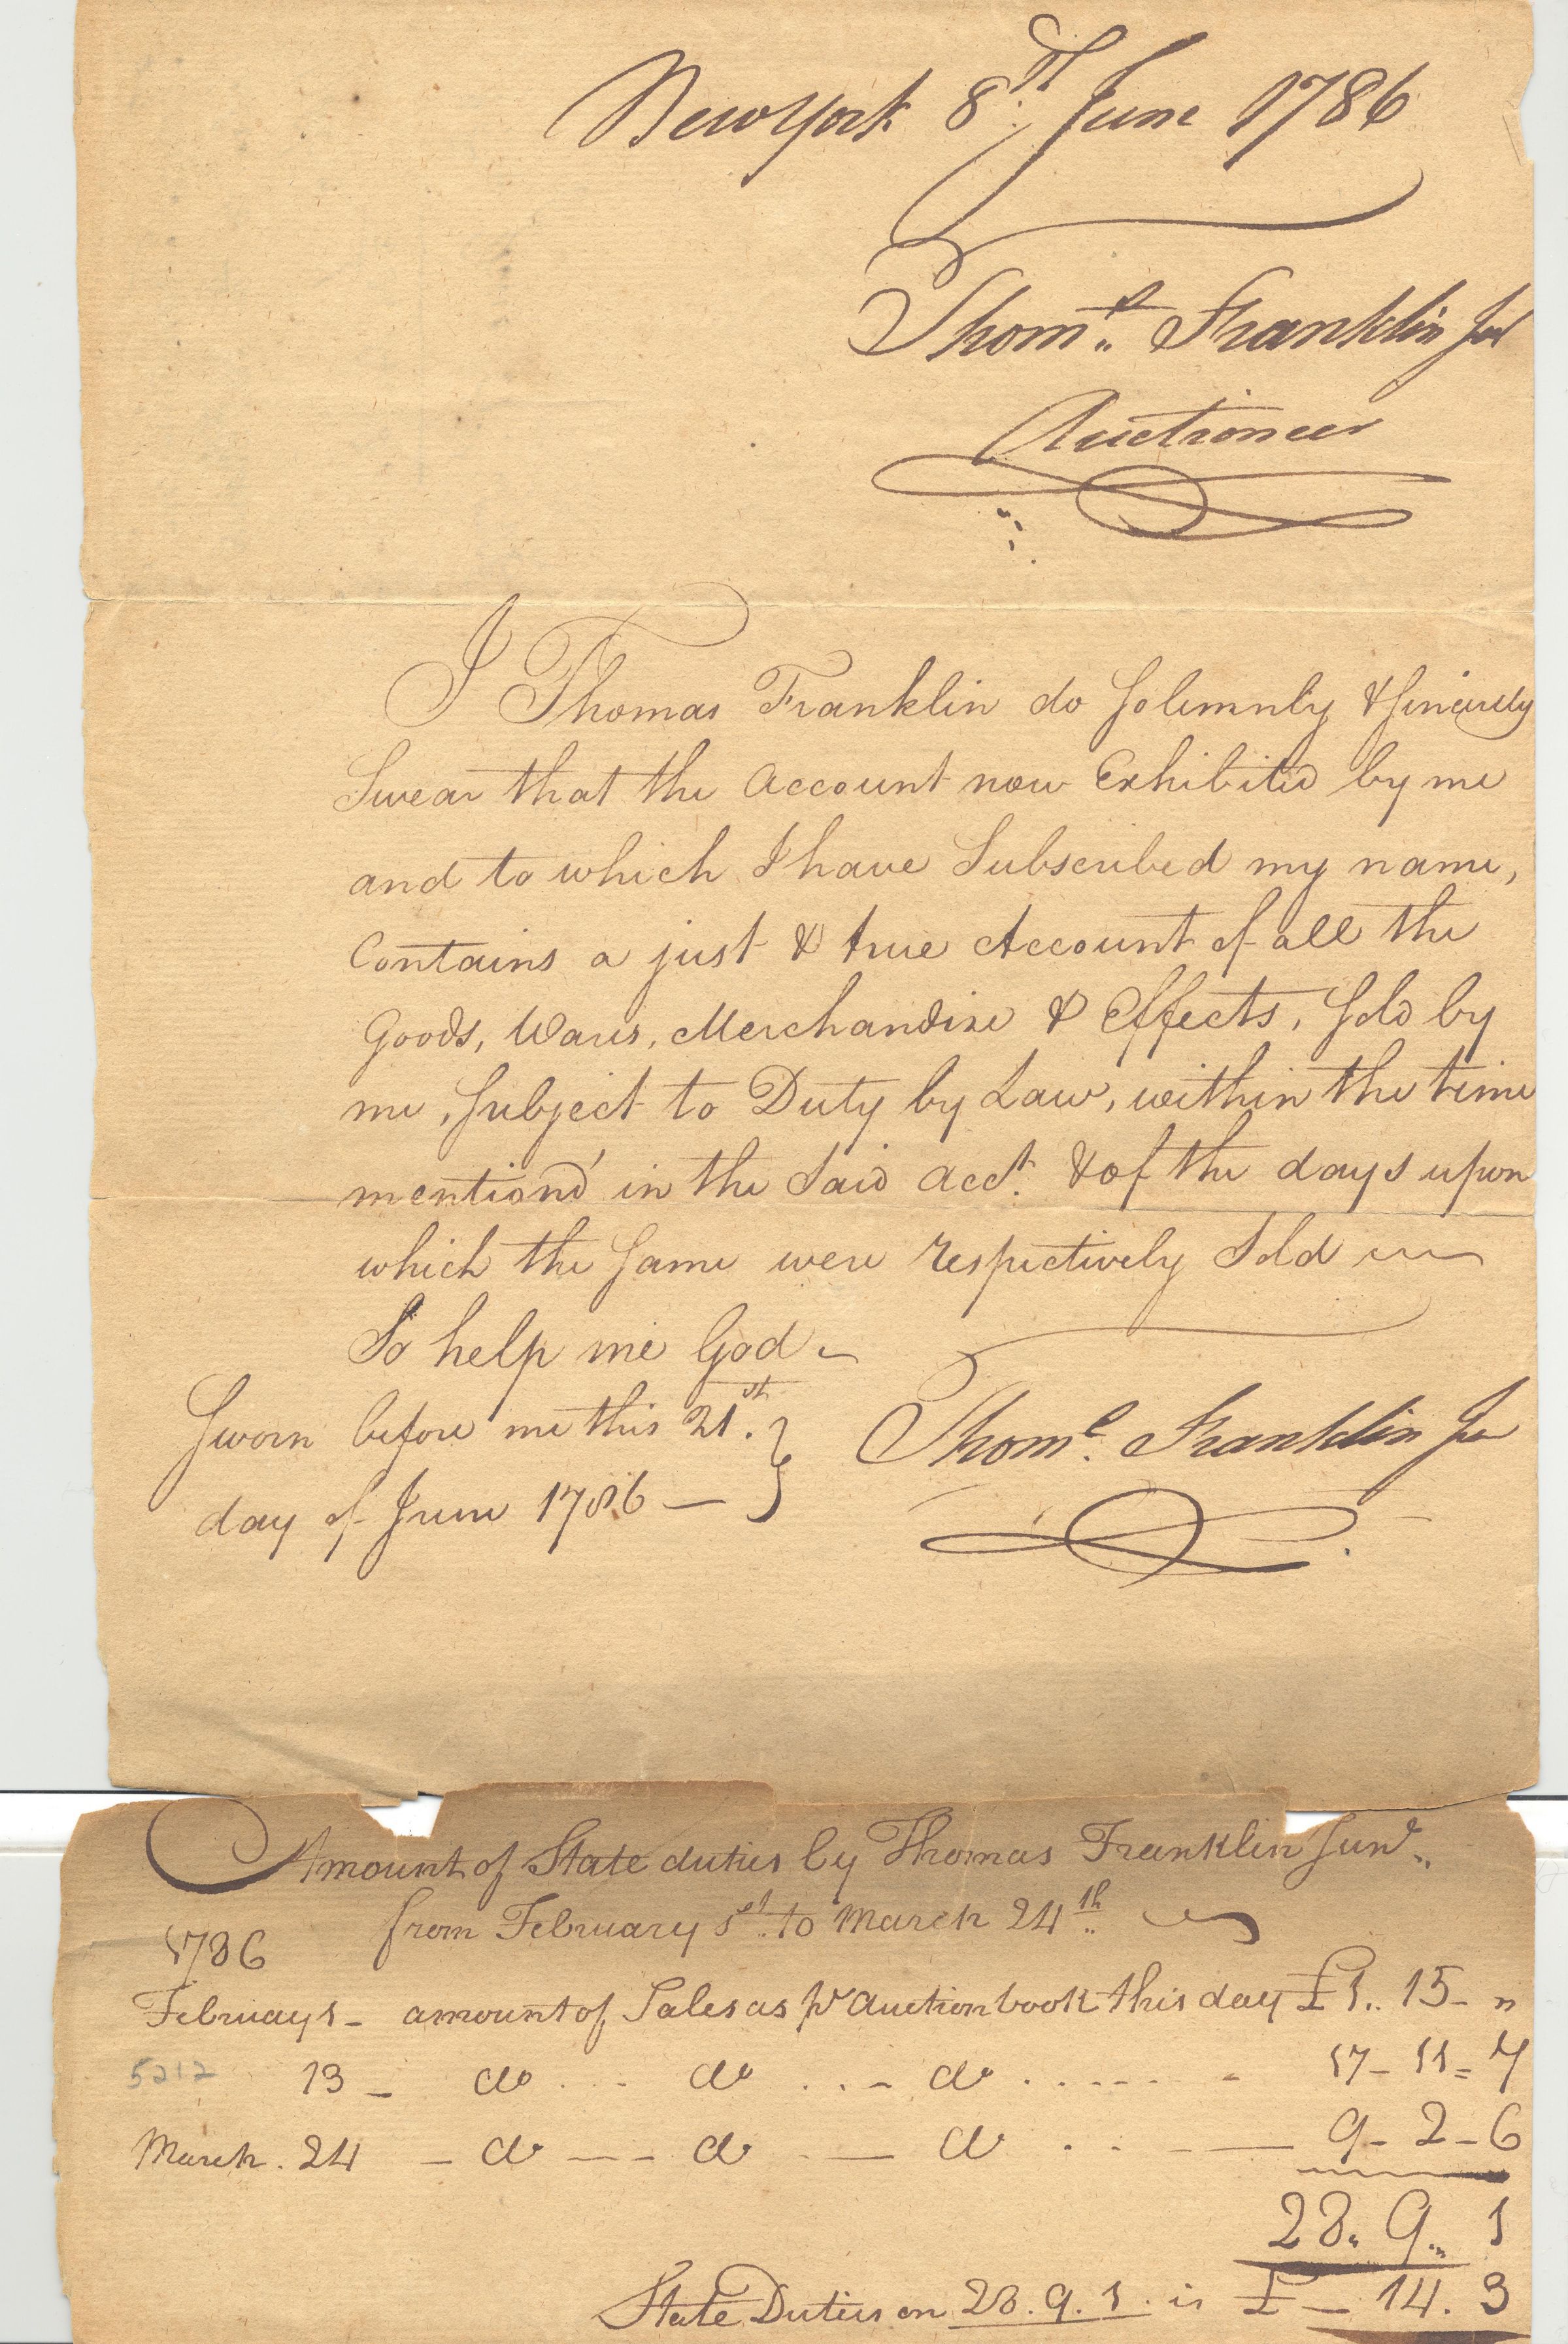 New York 8th June 1786
Thoms. Franklin Jur
Auctioneer
I Thomas Franklin do Solemnly & Sincerely
Swear that the Account now Exhibited by me
and to which I have Subscribed my name,
Contains a just & true Account of all the
Goods, Wares, Merchandize & Effects, Sold by
me, Subject to Duty by Law, within the time
mention'd in the Said Acct. & of the days upon
which the Same were respectively Sold
So help me God
Sworn before me this 21st.
day of June 1786
Thoms. Franklin Jur
Amount of State duties by Thomas Franklin Junr.
from February 1st. to March 24th.
1786
February 1 - amount of Sales as pr Auction book this day £1.. 15 - "
5212 13 - do do do 17 - 11 = 7
March. 24 - do do do 9 - 2 - 6
28.. 9.. 1
State Duties on 28. 9. 1. is £ - 14. 3